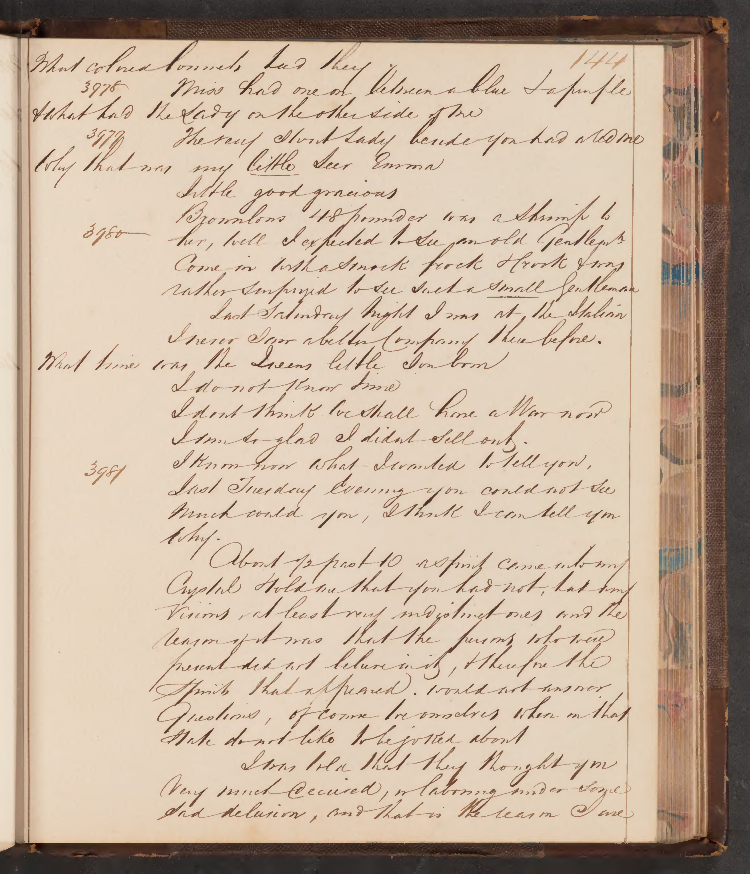 144
What colored bonnets had they
3978 Miss had one on between a blue & a purple
& What had the Lady on the other side of me
3979 The very Stout Lady beside you had a red one
Why that was my little Seer Emma
Little good gracious
Brownlows 48 pounder was a Shrimp to
3980 her, well I expected to see an old Gentleman
Come in with a Smock frock & crook & was
rather surprized to see such a small Gentleman
Last Saturday Night I was at the Italian
I never saw a better Company there before.
What time was the Queens little Son born
I do not know time
I dont think we shall have a War now
I am so glad I didnt sell out.
3981 I know now what I wanted to tell you,
Last Tuesday Evening you could not see
much could you, I think I can tell you
why.
About ½ past 10 a spirit came into my
Crystal & told me that you had not, had any
Visions, at least very indistinct ones and the
reason of it was that the persons who were
present did not believe in it, & therefore the
Spirits that appeared. would not answer
Questions, of course we ourselves when in that
State do not like to be joked about
I was told that they thought you
very much deceived, or laboring under some
sad delusion, and that is the reason I use